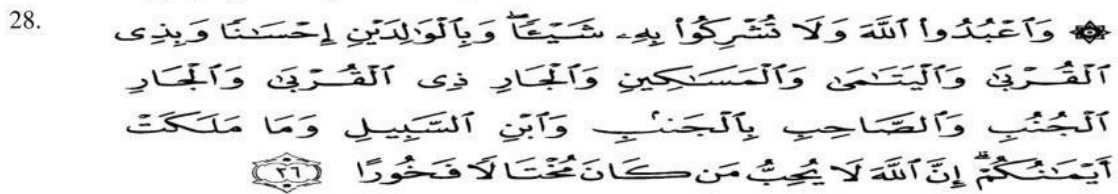 28. ۞ وَٱعْبُدُوا۟ ٱللَّهَ وَلَا تُشْرِكُوا۟ بِهِۦ شَيْـًٔا ۖ وَبِٱلْوَٰلِدَيْنِ إِحْسَـٰنًا وَبِذِى
ٱلْقُرْبَىٰ وَٱلْيَتَـٰمَىٰ وَٱلْمَسَـٰكِينِ وَٱلْجَارِ ذِى ٱلْقُرْبَىٰ وَٱلْجَارِ
ٱلْجُنُبِ وَٱلصَّاحِبِ بِٱلْجَنۢبِ وَٱبْنِ ٱلسَّبِيلِ وَمَا مَلَكَتْ
أَيْمَـٰنُكُمْ ۗ إِنَّ ٱللَّهَ لَا يُحِبُّ مَن كَانَ مُخْتَالًا فَخُورًا ﴿٣٦﴾